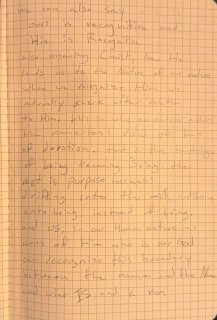 we can also say
ours is recognition and
His is Recognition
also meaning Christ, how He
leads us to the Nation of our nature
when we recognize Him we
naturally seek after
to Him. His is who
the nameless void of lack
of devotion. that is the
of being becoming Being. the
rest is purposelessness
drifting into the void,
into being instead of being.
and us, in our Human nature as
icons of Him who is our God
can recognize this boundary
between the name and the
and what IS and is non